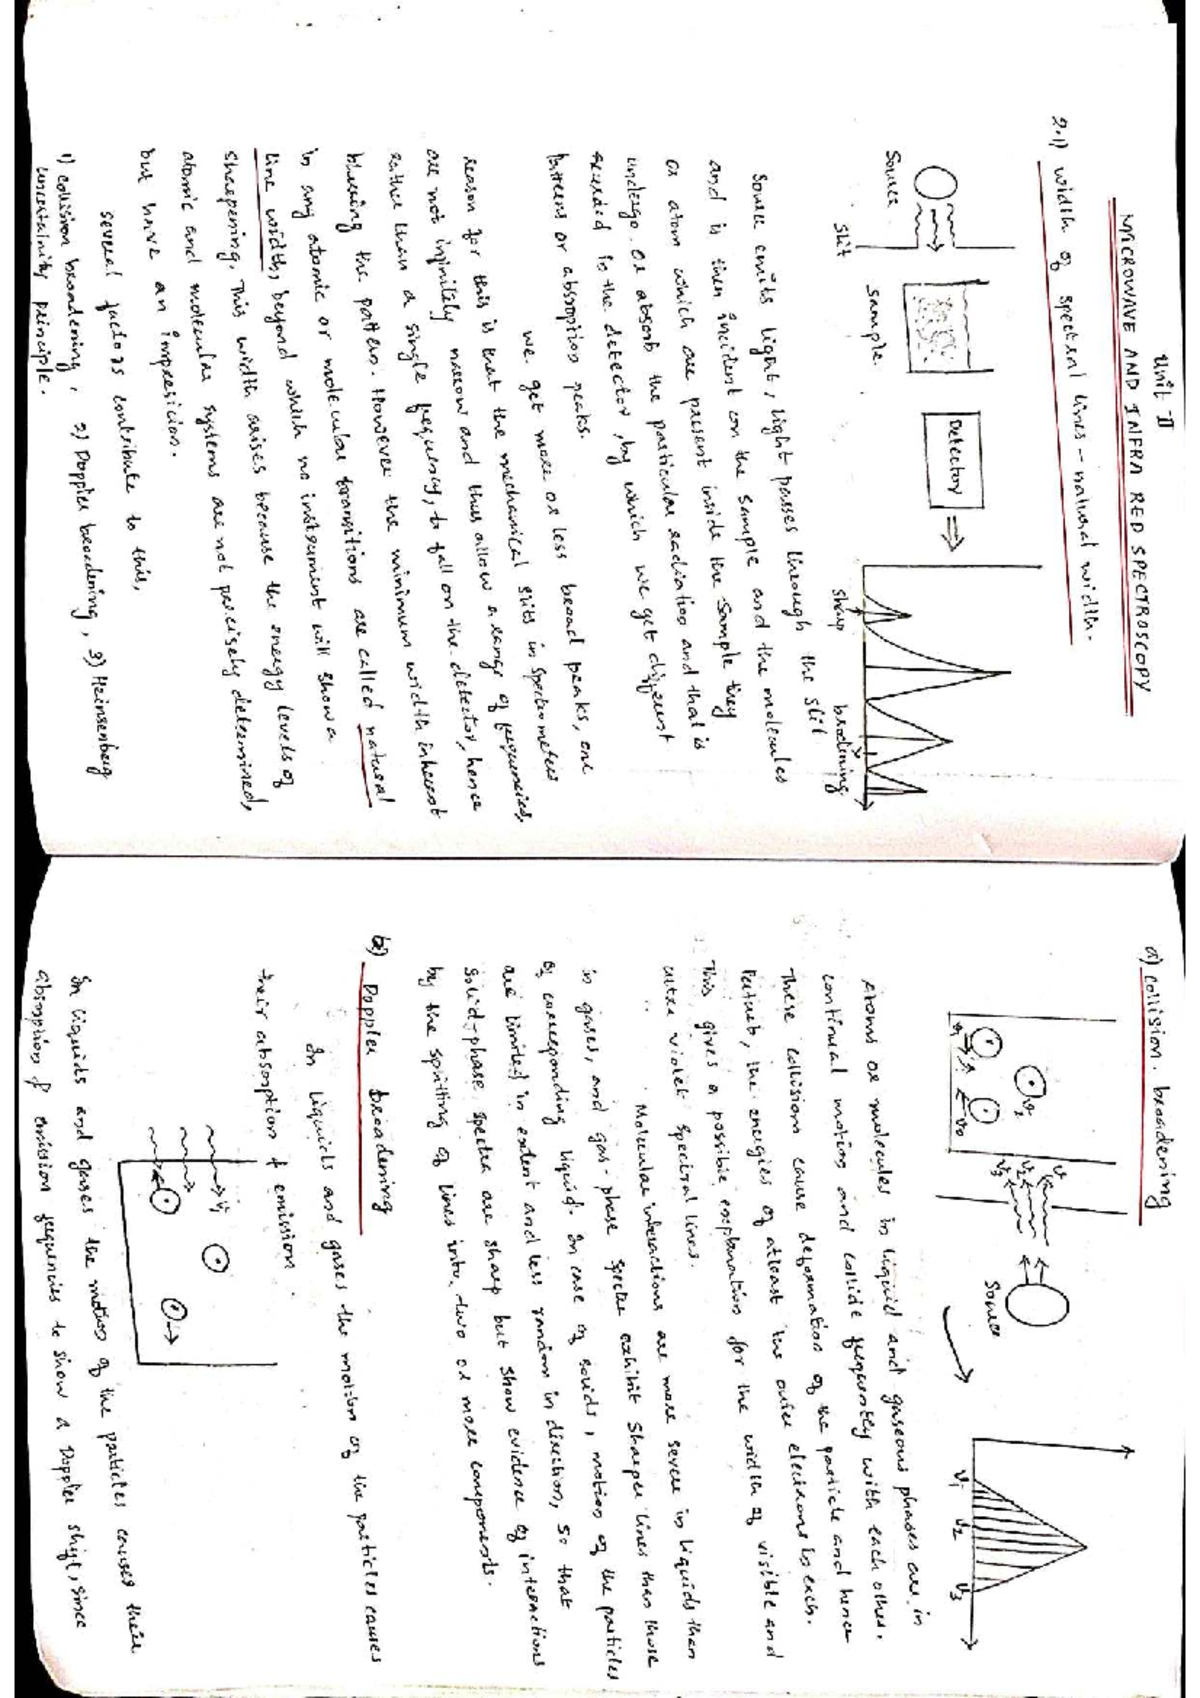 Unit II
MICROWAVE AND INFRA RED SPECTROSCOPY
2.1) width of spectral lines - natural width.
Source
slit
sample
Detector
sharp
broadining
Source emits light, light passes through the slit
and is then incident on the sample and the molecules
or atom which are present inside the sample they
undergo or absorb the particular radiation and that is
recorded in the detector, by which we get different
patterns or absorption peaks.
we get more or less broad peaks, one
reason for this is that the mechanical slits in spectrometers
are not infinitely narrow and thus allow a range of frequencies,
rather than a single frequency, to fall on the detector, hence
blurring the pattern. However the minimum width inherent
in any atomic or molecular transitions are called natural
line width, beyond which no instrument will show a
sharpening. This width arises because the energy levels of
atomic and molecular systems are not precisely determined,
but have an impresision.
several factors contribute to this,
1) collision broadening, 2) Doppler broadening, 3) Heinsenberg
uncertainity principle.
a) collision broadening
ν
ν2
ν3
Source
ν1 ν2 ν3
Atoms or molecules in liquid and gaseous phases are in
continual motion and collide frequently with each other.
These collisions cause deformation of the particle and hence
perturb, the energies of atleast the outer electrons in each.
This gives a possible explanation for the width of visible and
ultra violet spectral lines.
Molecular interactions are more severe in liquids than
in gases, and gas-phase spectra exhibit sharper lines than those
of corresponding liquid. In case of solids, motion of the particles
are limited in extent and less random in direction, so that
solid-phase spectra are sharp but show evidence of interactions
by the splitting of lines into two or more components.
b) Doppler broadening
In liquids and gases the motion of the particles causes
their absorption & emission
In liquids and gases the motion of the particles causes their
absorption & emission frequencies to show a Doppler shift, since